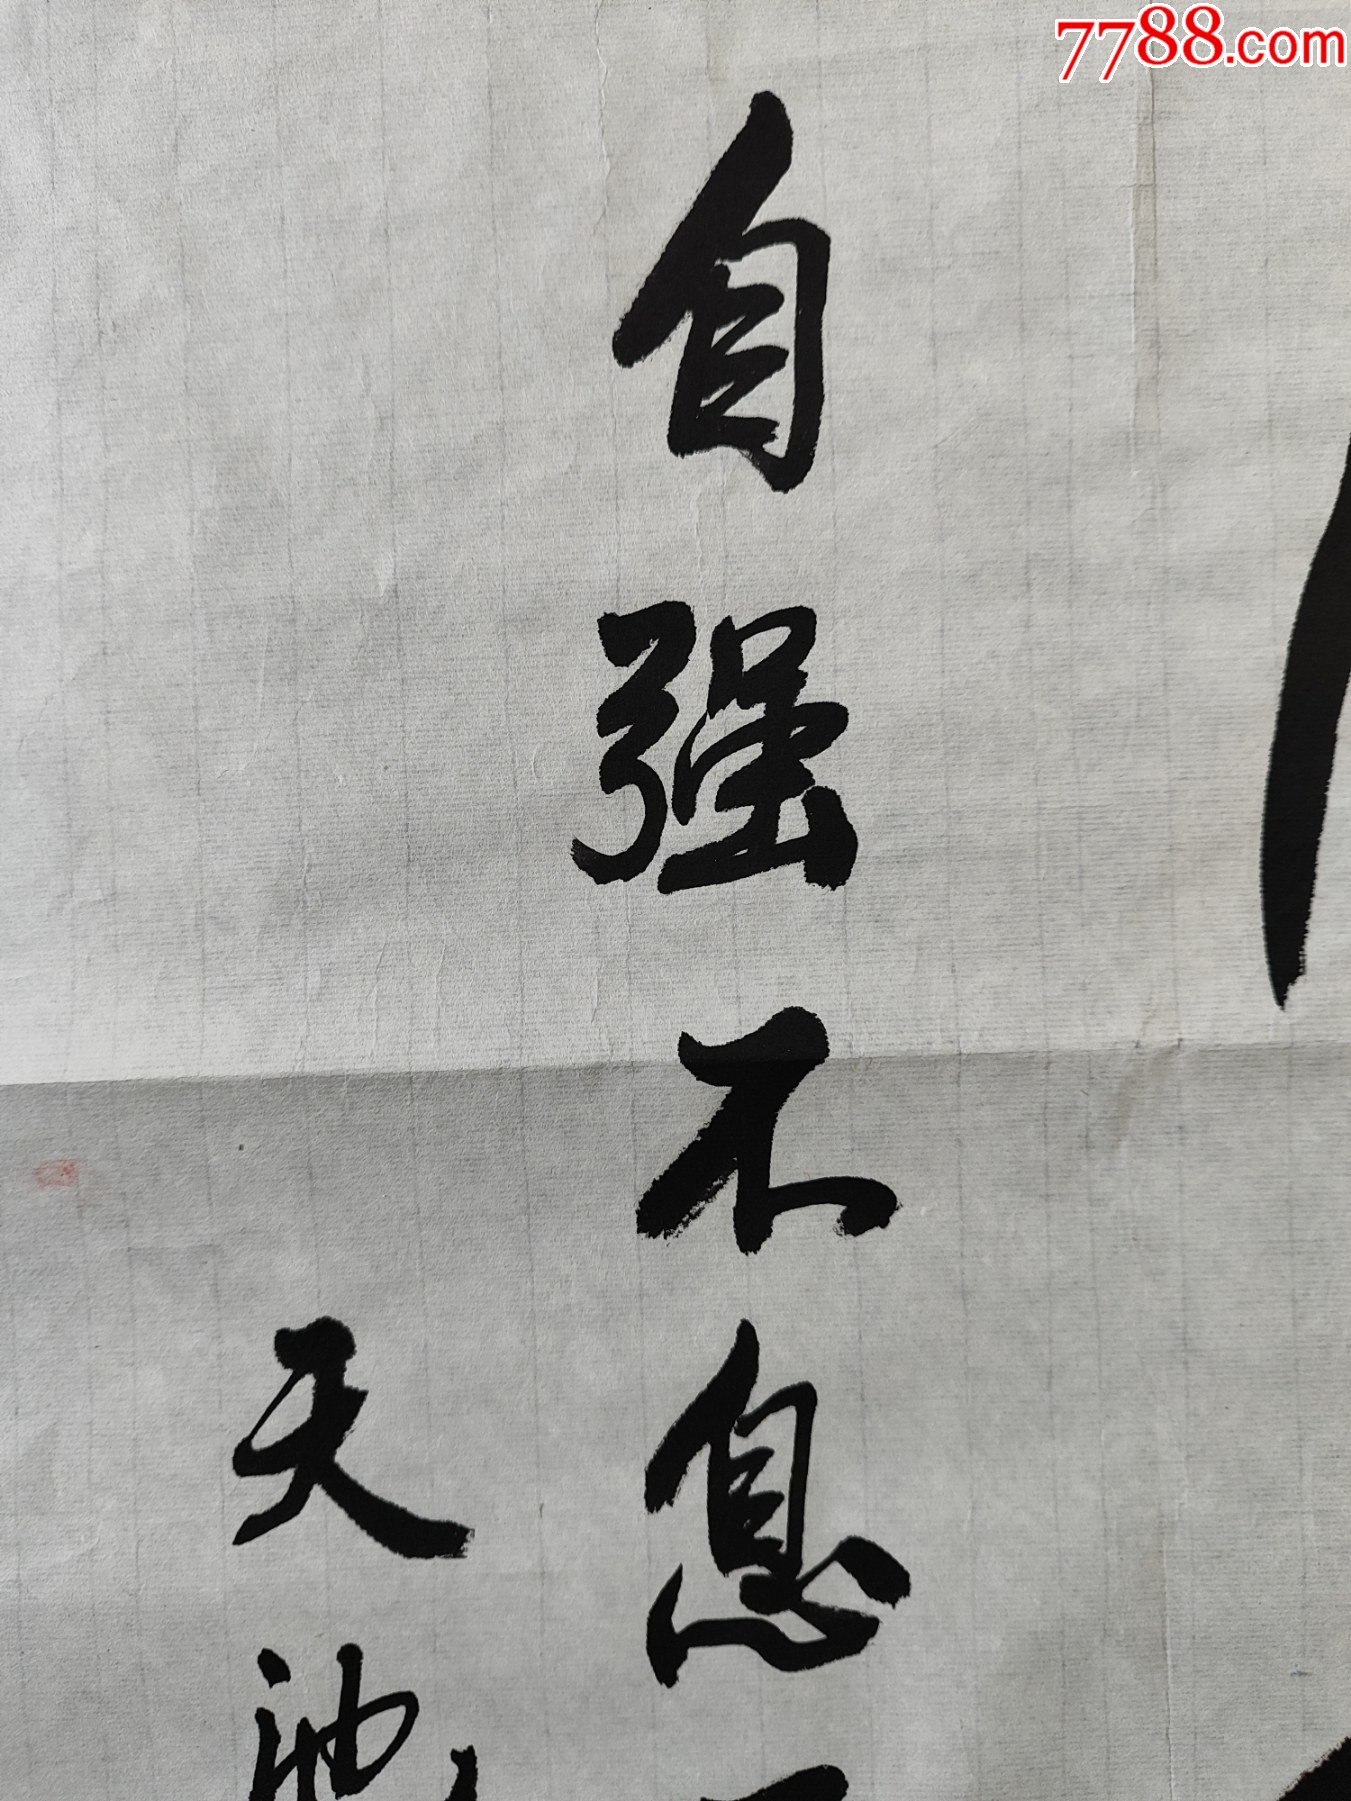 7788.com
自强不息
天池